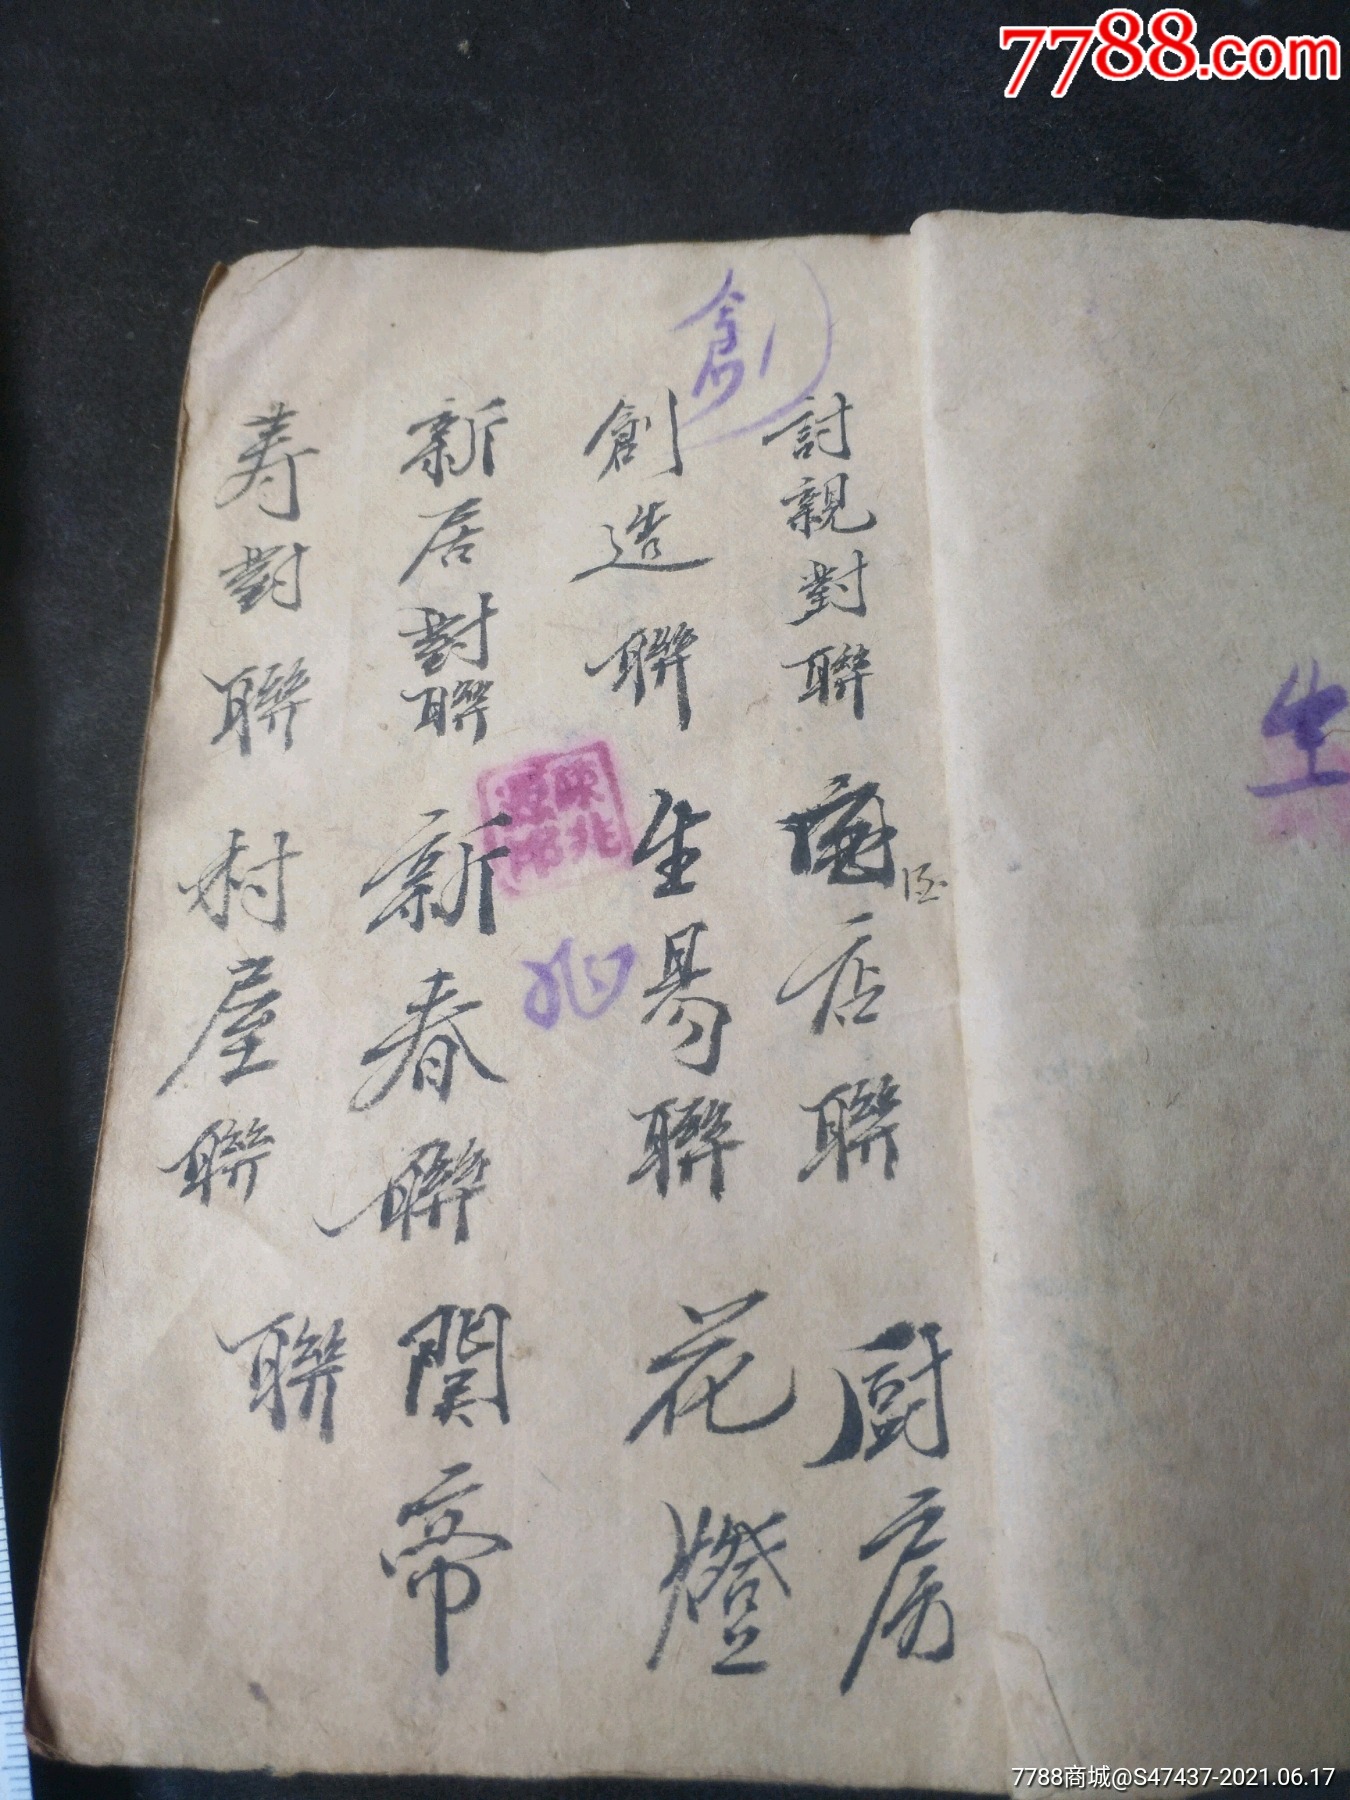 7788.com
創
生
討親對聯 店聯 厨房
創造聯 生易聯 花燈
新居對聯 新春聯 関帝
寿對聯 村屋聯 聯
兆
7788商城@S47437-2021.06.17